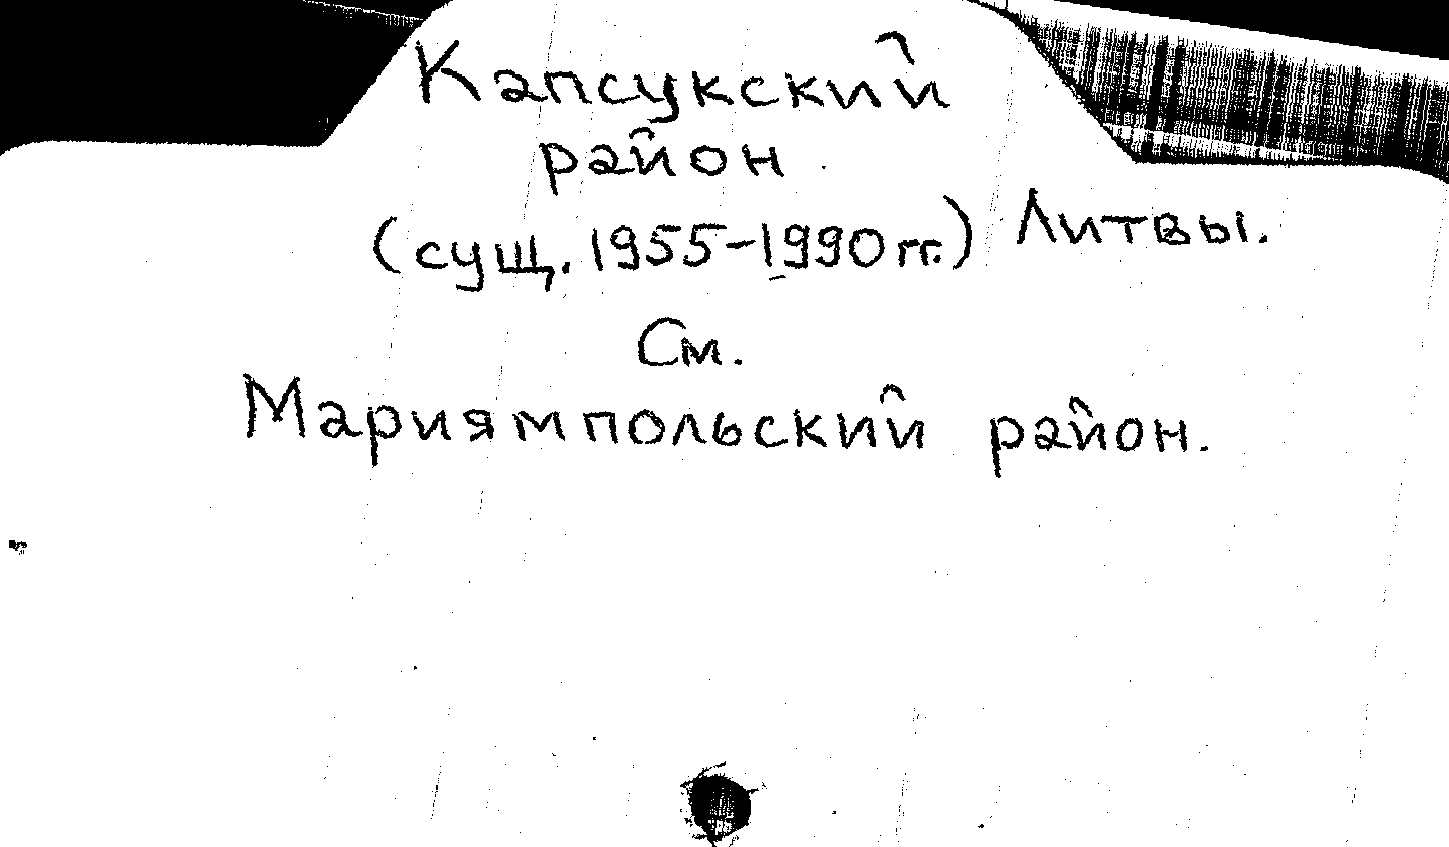 Капсукский
район
(сущ. 1955-1990 гг.) Литвы.
См.
Мариямпольский район.